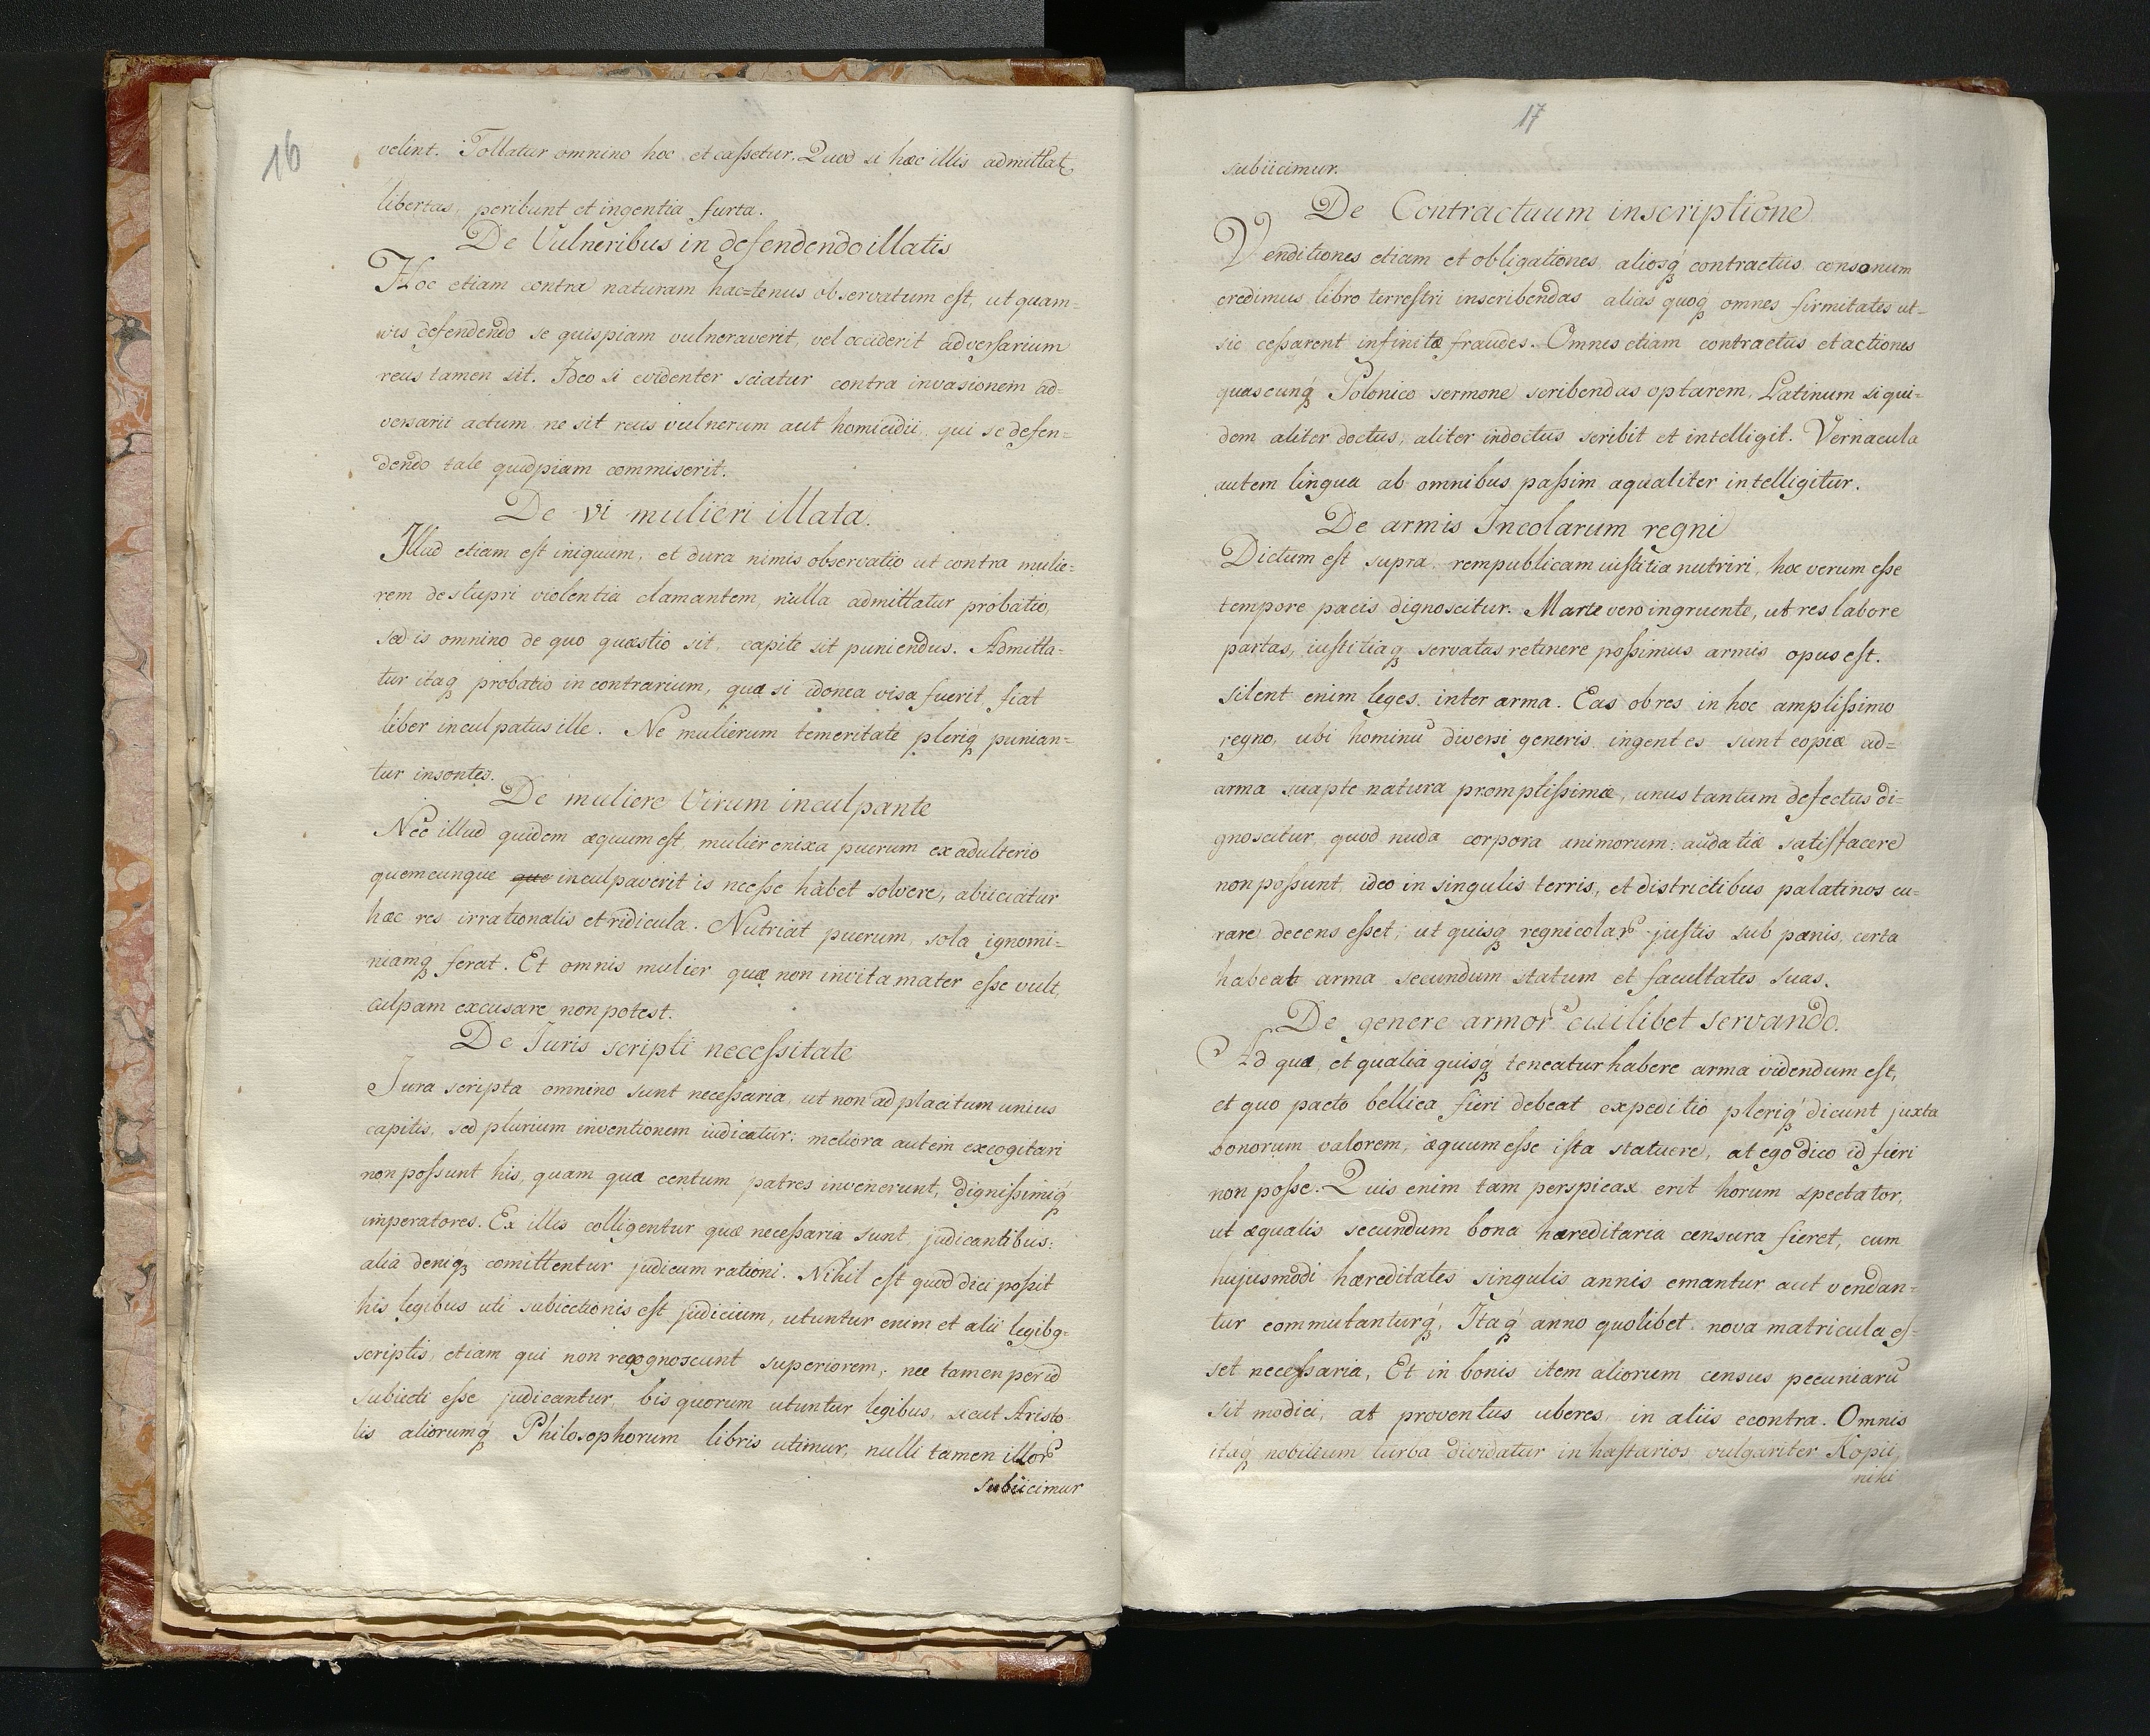 16
velint. Tollatur omnino hoc et caſsetur. Quod si hæc illis admittat
libertas, peribunt et ingentia furta.
De Vulneribus in defendendo illatis
Hoc etiam contra naturam hac=tenus observatum eſt, ut quam=
vis defendendo se quispiam vulneraverit, vel occiderit adverſarium
reus tamen sit. Ideo si evidenter sciatur contra invasionem ad=
versarii actum ne sit reus vulnerum aut homicidii, qui se defen=
dendo tale quidpiam commiserit.
De vi mulieri illata.
Illud etiam eſt iniquum, et dura nimis observatio ut contra mulie=
rem de stupri violentia clamantem, nulla admittatur probatio,
sed is omnino de quo quæstio sit, capite sit puniendus. Admitta=
tur itaq probatio in contrarium, quæ si idonea visa fuerit, fiat
liber inculpatus ille. Ne mulierum temeritate pleriq punian=
tur insontes.
De muliere Virum inculpante
Nec illud quidem æquum eſt, mulier enixa puerum ex adulterio
quemcunque que inculpaverit is neceſse habet solvere, abiiciatur
hæc res irrationalis et ridicula. Nutriat puerum, sola ignomi=
niamq ferat. Et omnis mulier quæ non invita mater eſse vult,
culpam excusare non potest.
De Iuris scripti neceſsitate
Jura scripta omnino sunt neceſsaria, ut non ad placitum unius
capitis, sed plurium inventionem iudicatur: meliora autem excogitari
non poſsunt his, quam quæ centum patres invenerunt, digniſsimiq
imperatores. Ex illis colligentur quæ neceſsaria sunt judicantibus:
alia deniq comittentur judicum rationi. Nihil eſt quod dici poſsit
his legibus uti subiectionis eſt judicium, utuntur enim et alii legibq=
scriptis, etiam qui non recognoscunt superiorem, nec tamen per id
subiecti eſse judicantur, his quorum utuntur legibus, sicut Aristo
lis aliorumq Philosophorum libris utimur, nulli tamen illor
subiicimur
17
subiicimur.
De Contractuum inscriptione
Venditiones etiam et obligationes, aliosq contractus consonum
credimus libro terreſtri inscribendas alias quoq omnes firmitates ut=
sic ceſsarent infinitæ fraudes. Omnes etiam contractus et actiones
quascunq Polonico sermone scribendas optarem, Latinum siqui=
dem aliter doctus, aliter indoctus scribit et intelligit. Vernacula
autem lingua ab omnibus paſsim æqualiter intelligitur.
De armis Incolarum regni
Dictum eſt supra, rempublicam iuſtitia nutriri, hoc verum eſse
tempore pacis dignoscitur. Marte vero ingruente, ut res labore
partas, iuſtitiaq servatas retinere poſsimus armis opus eſt.
silent enim leges inter arma. Eas ob res in hoc ampliſsimo
regno, ubi hominũ diversi generis ingentes sunt copiæ ad=
arma suapte natura promptiſsimæ, unus tantum defectus di=
gnoscitur, quod nuda corpora animorum audatiæ satisfacere
non poſsunt, ideo in singulis terris, et districtibus palatinos cu=
rare decens eſset, ut quisq regnicolar juſtis sub pænis, certa
habeat arma secundum statum et facultates suas.
De genere armor cuilibet servando.
Ad quæ, et qualia quisq teneatur habere arma videndum eſt,
et quo pacto bellica fieri debeat expeditio pleriq dicunt juxta
bonorum valorem, æquum eſse iſta statuere, at ego dico id fieri
non poſse. Quis enim tam perspicax erit horum spectator,
ut æqualis secundum bona hæreditaria censura fieret, cum
hujusmodi hæreditates singulis annis emantur aut vendan=
tur commutanturq. Itaq anno quolibet nova matricula eſ=
set neceſsaria, Et in bonis item aliorum census pecuniarũ
sit modici, at proventus uberes, in aliis econtra. Omnis
itaq nobilium turba dividatur in haſtarios vulgariter Kopii,
niki